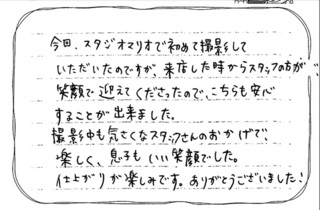 今回、スタジオマリオで初めて撮影して
いただいたのですが、来店した時からスタッフの方が
笑顔で迎えてくださったので、こちらも安心
することが出来ました。
撮影中も気さくなスタッフさんのおかげで、
楽しく、息子もいい笑顔でした。
仕上がりが楽しみです。ありがとうございました!